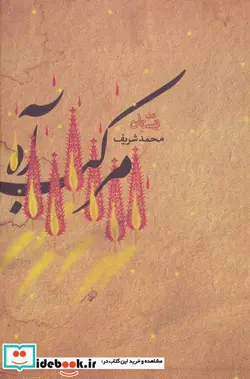 نیستان
محمد شریف
مرکب آه
مشاهده و خرید این کتاب در:
idebook.ir